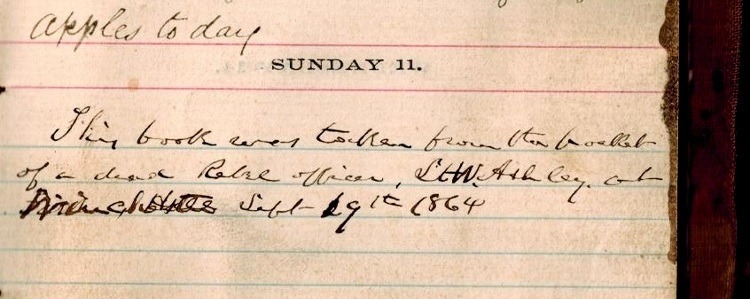 apples to day
SUNDAY 11.
This book was taken from the pocket
of a dead Rebel officer, Lt W. Ashley. at
Sept 19th 1864